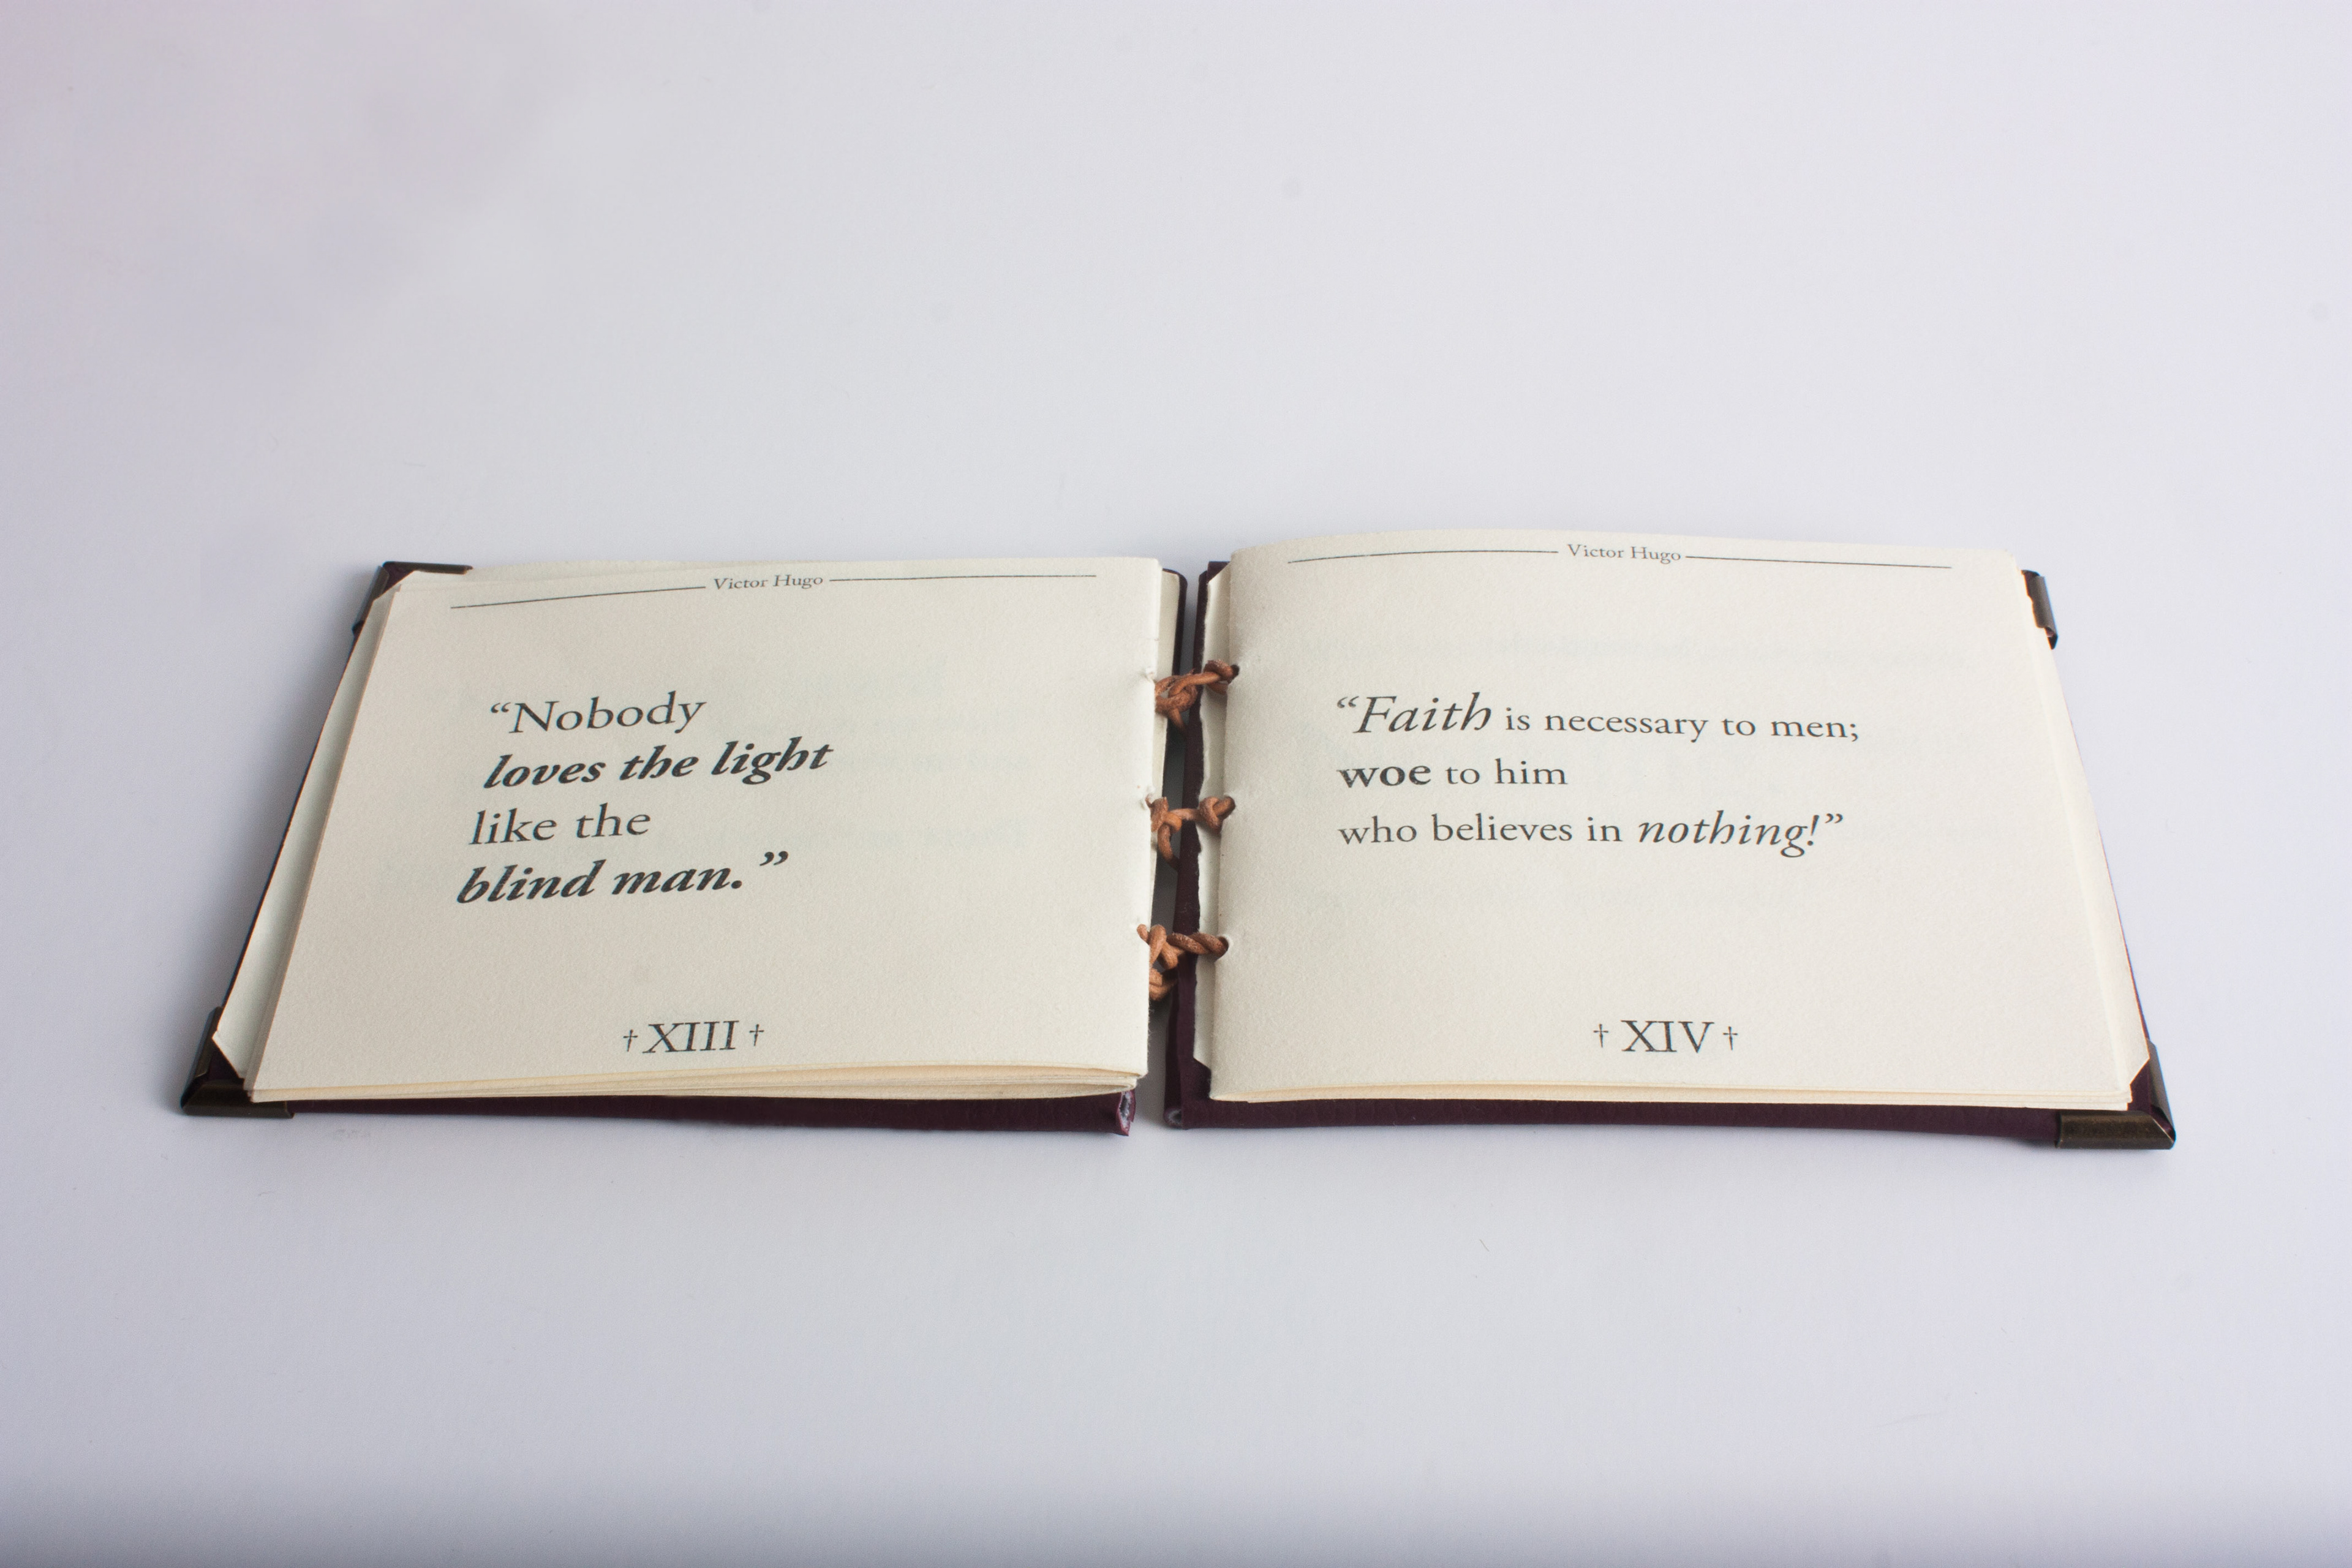 Victor Hugo
“Nobody
loves the light
like the
blind man.”
† XIII †
Victor Hugo
“Faith is necessary to men;
woe to him
who believes in nothing!”
† XIV †